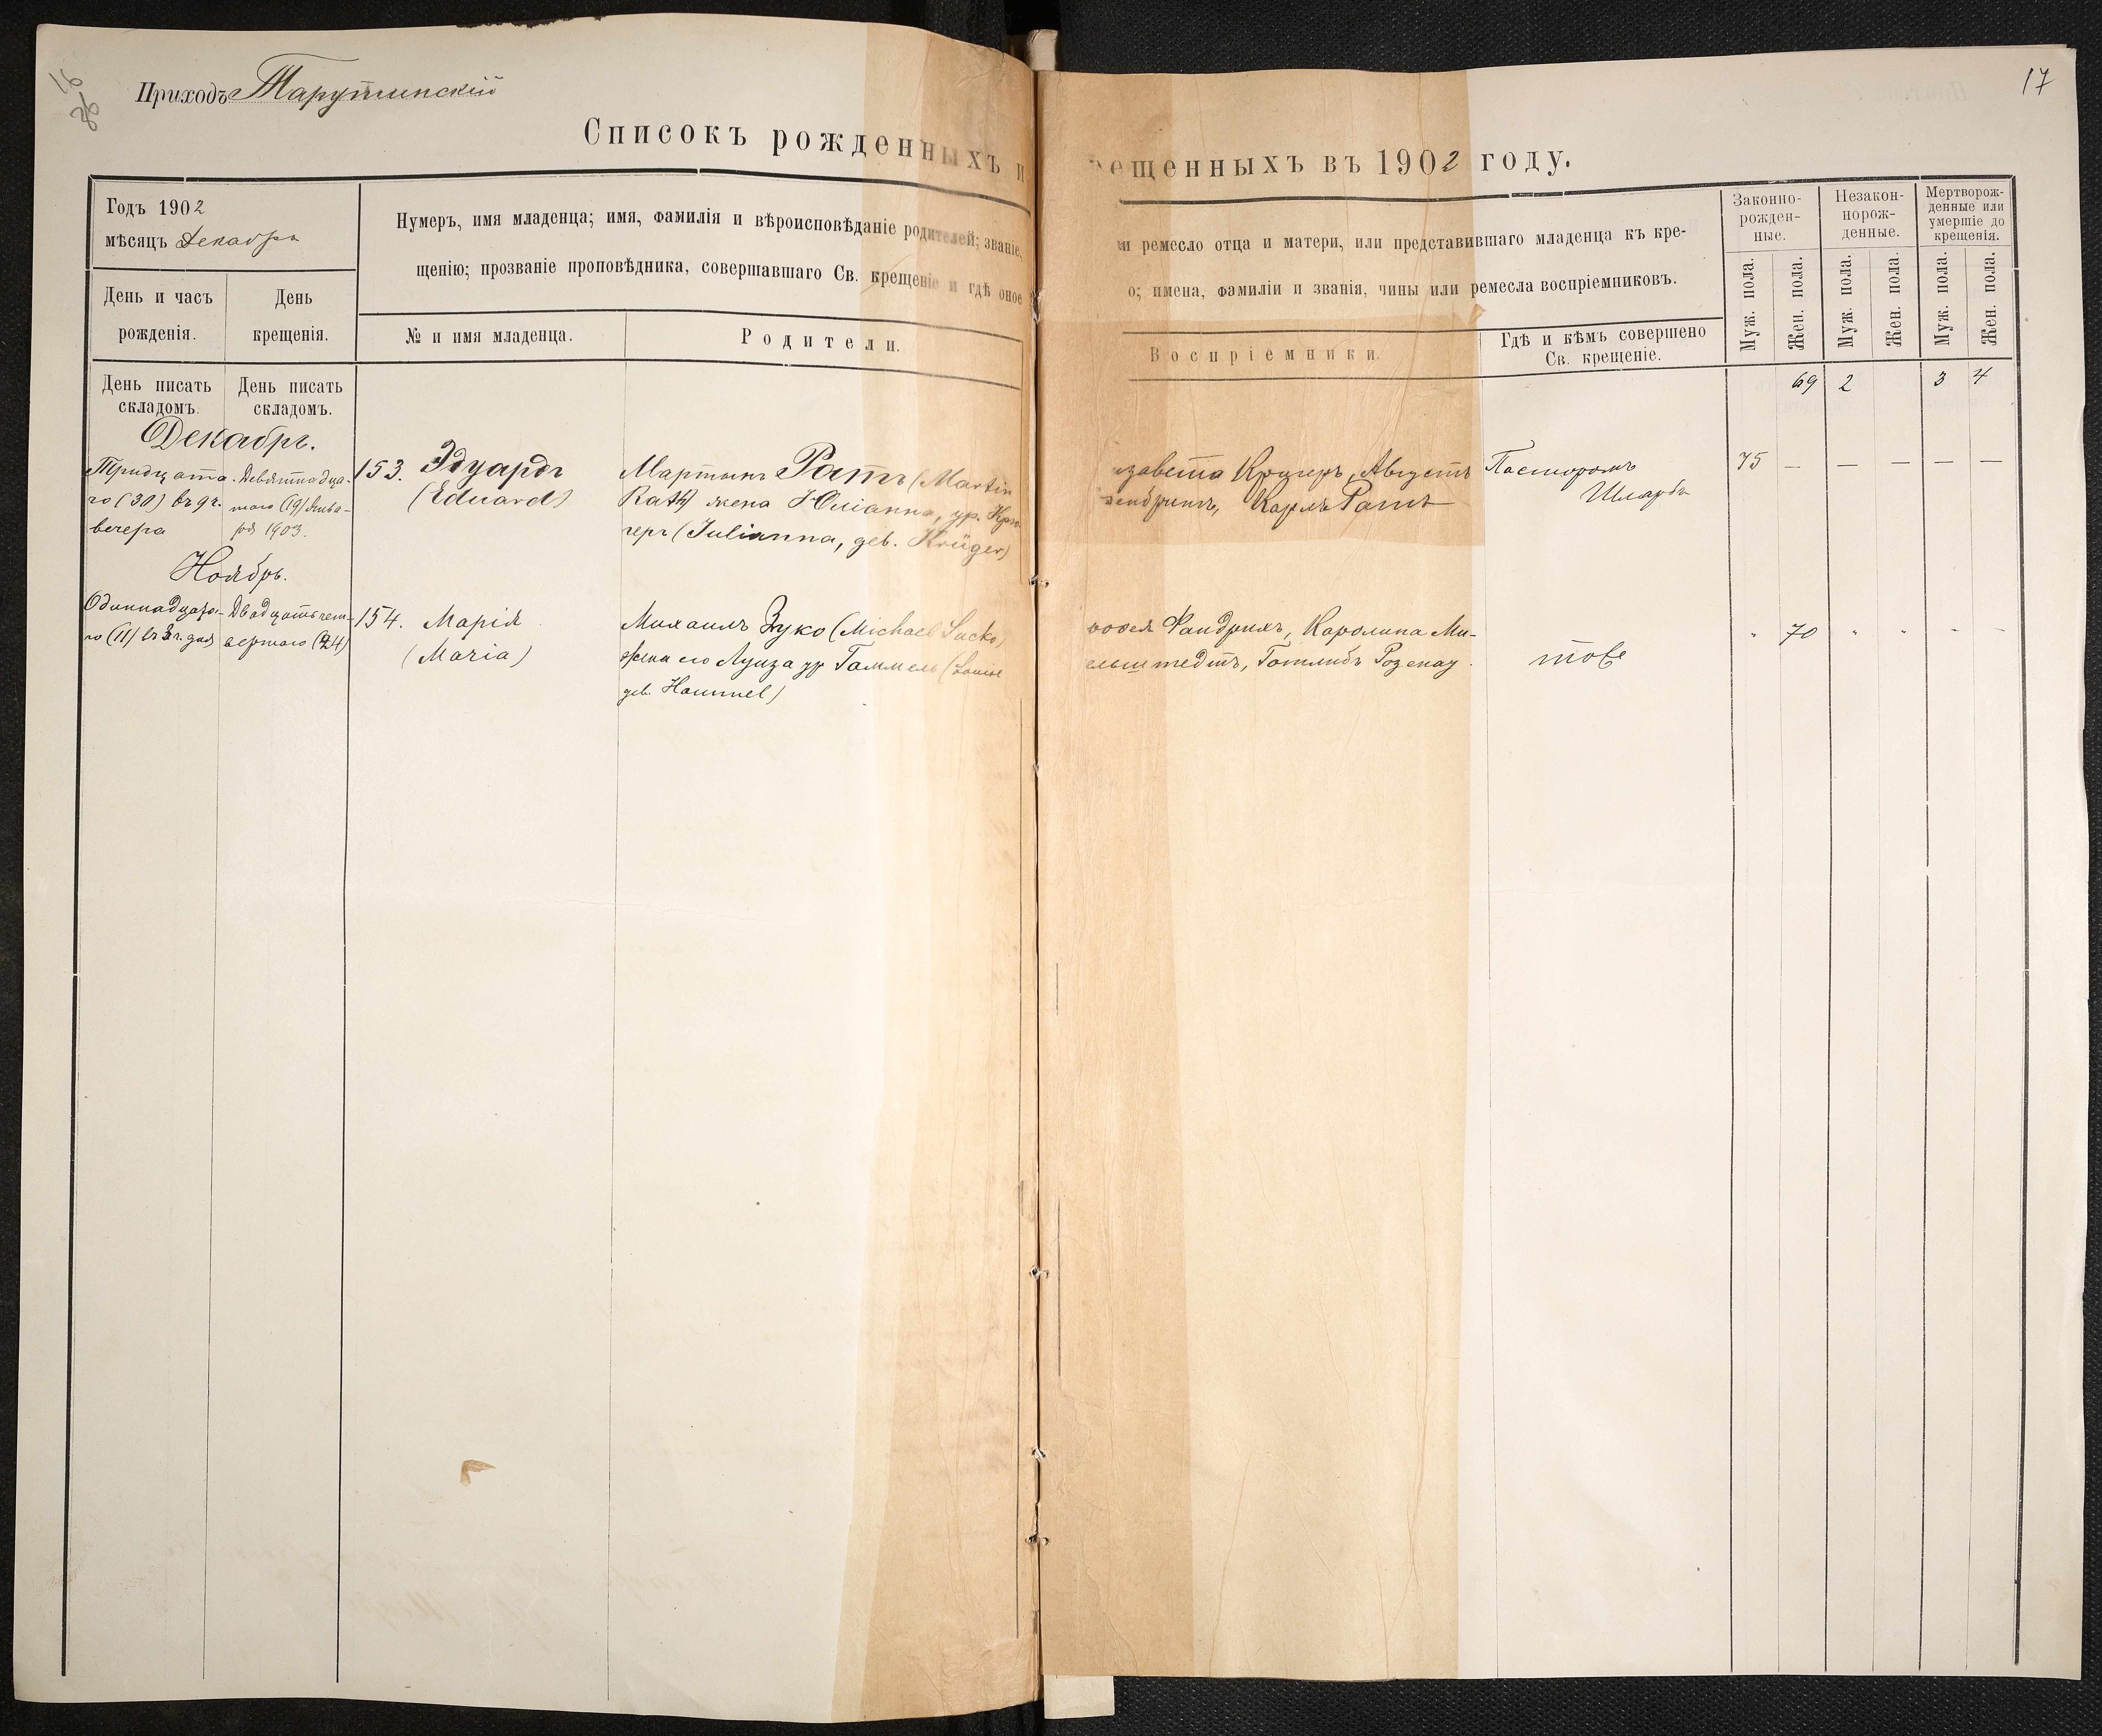 16
Приходъ Тарутинскій
17
Списокъ рожденныхъ и
рещенныхъ въ 1902 году.
Годъ 1902
мѣсяцъ Декабрь
День и часъ рожденія.
День крещенія.
Нумеръ, имя младенца; имя, фамилія и вѣроисповѣданіе родителей; званіе,
щенію; прозваніе проповѣдника, совершавшаго Св. крещеніе и гдѣ оное
№ и имя младенца.
Родители.
и ремесло отца и матери, или представившаго младенца къ кре-
о; имена, фамиліи и званія, чины или ремесла воспріемниковъ.
Воспріемники.
Гдѣ и кѣмъ совершено
Св. крещеніе.
Законно-
рожден-
ные.
Незакон-
норож-
денные.
Мертворож-
денные или
умершіе до
крещенія.
Муж. пола.
Жен. пола.
Муж. пола.
Жен. пола.
Муж. пола.
Жен. пола.
День писать
складомъ.
День писать
складомъ.
69 2 3 4
Декабрь.
Тридцата-
го (30) въ 9 ч.
вечера
Девятнадца-
таго (19) Янва-
ря 1903.
153. Эдуардъ
(Eduard)
Мартынъ Ратъ (Martin
Rath) жена Юліанна, ур. Крю-
геръ (Julianna, geb. Krüger)
изавета Крюгеръ, Августъ
Карлъ Ратъ
Пасторомъ
Шлардъ
75 — — — — —
Ноябрь.
Одиннадцата-
го (11) въ 3 ч. дня
Двадцать чет-
вертаго (24)
154. Марія
(Maria)
Михаилъ Зуко (Michael Sucko)
жена его Луиза ур Гаммель (Louise
geb. Hammel)
Фандрихъ, Каролина Ми-
ельштедтъ, Готлибъ Розенау.
тоже
" 70 " " - -